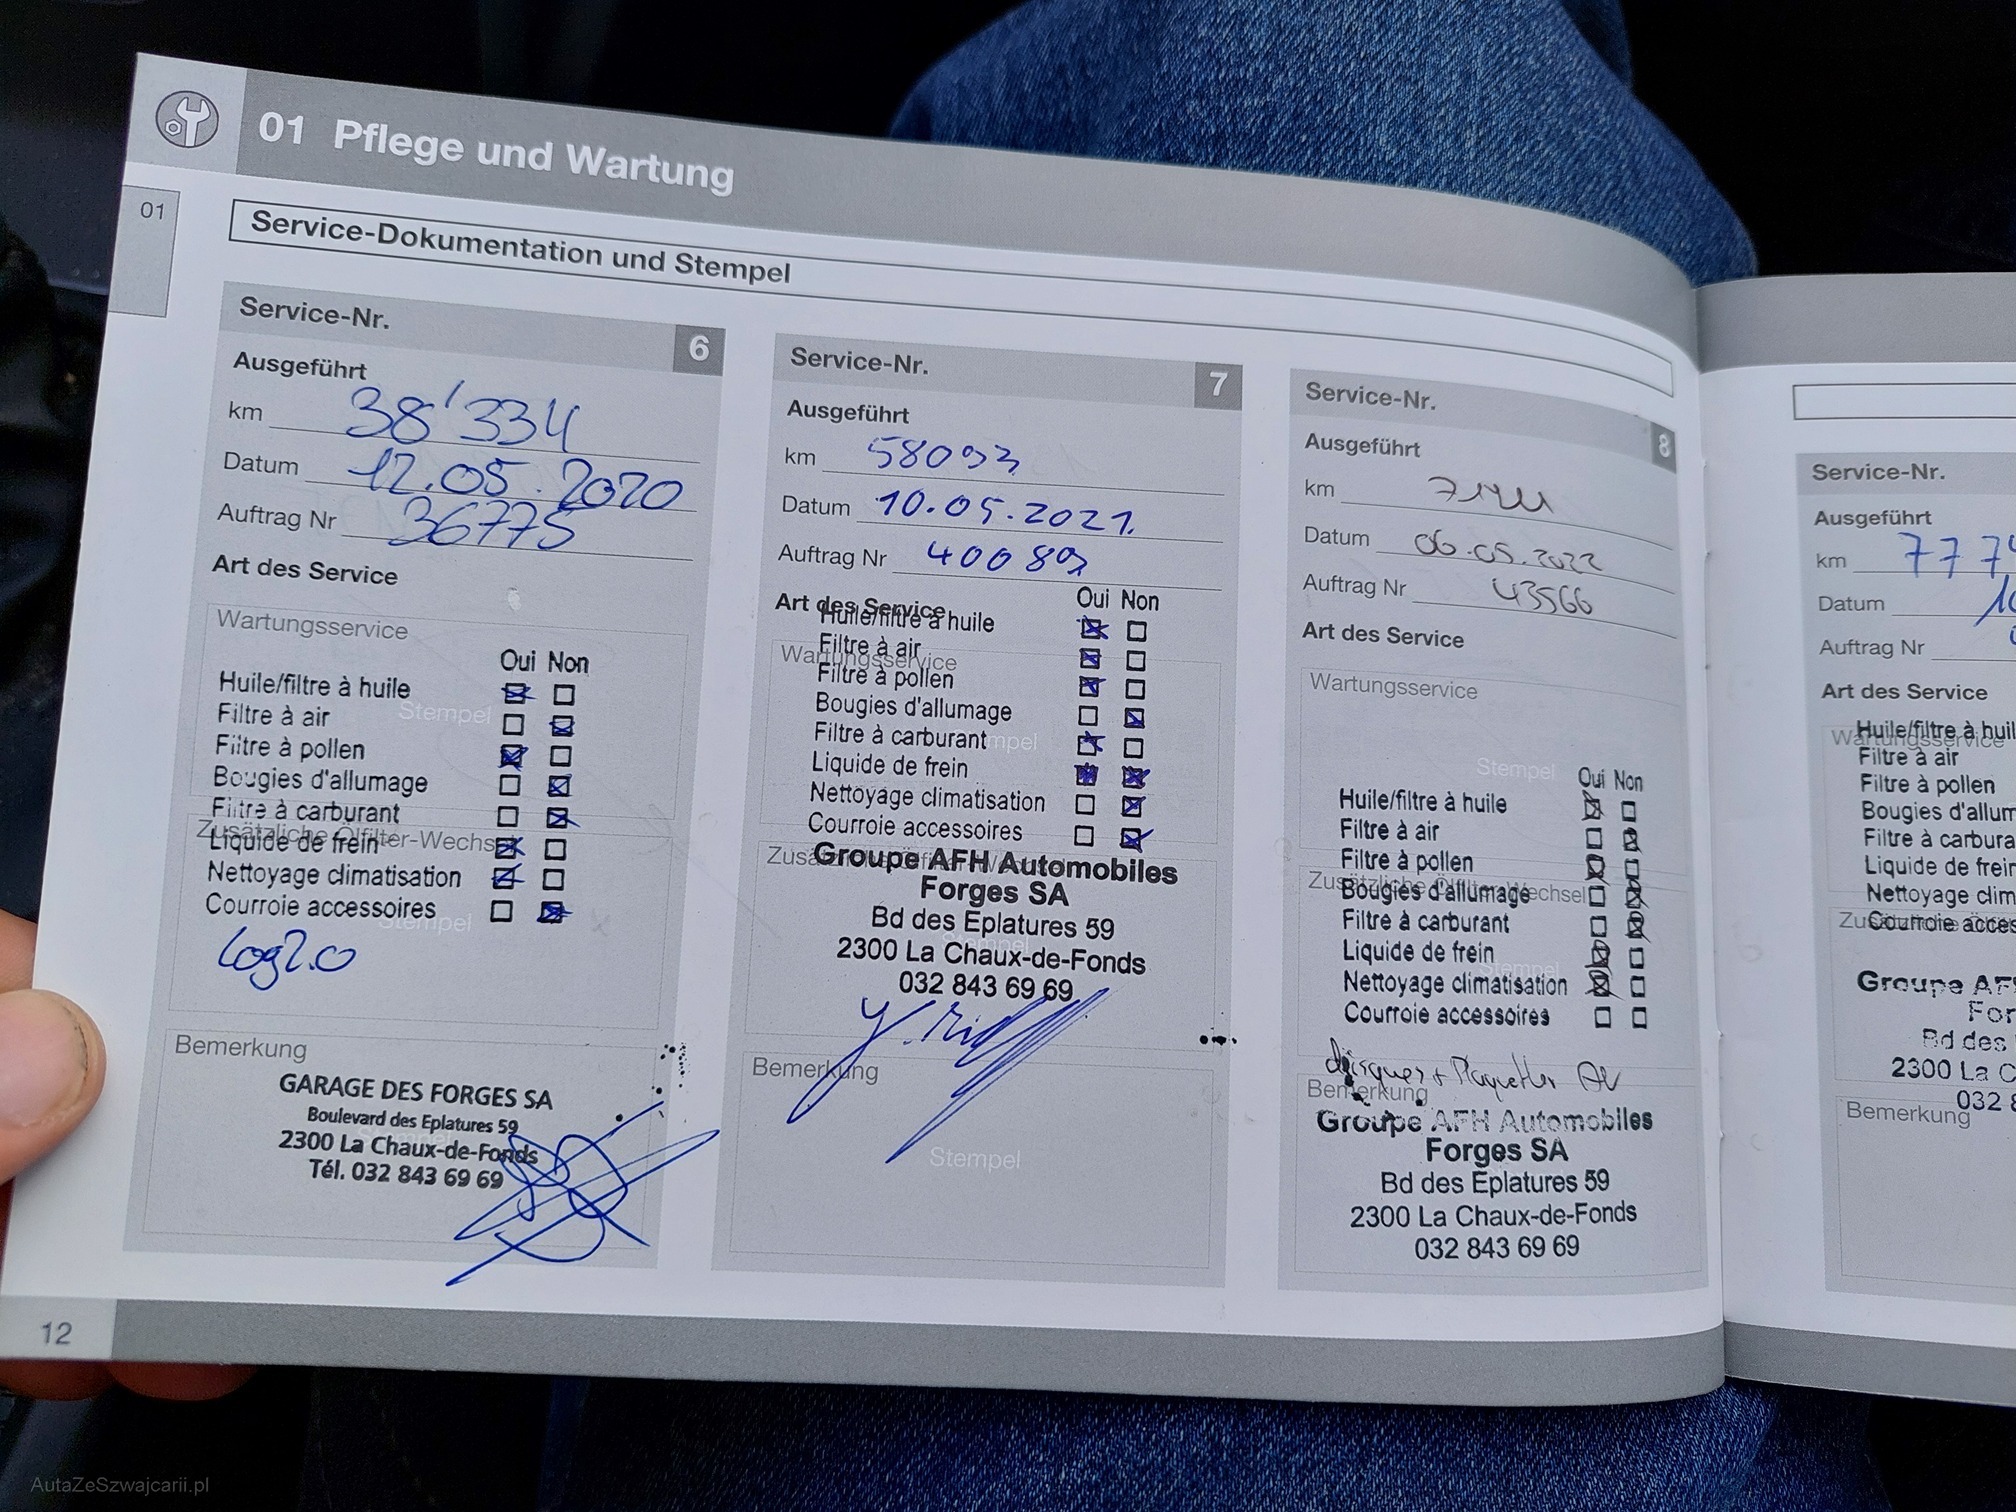 01 Pflege und Wartung
01
Service-Dokumentation und Stempel
Service-Nr. 6
Ausgeführt
km 38'334
Datum 12.05.2020
Auftrag Nr 36775
Art des Service
Wartungsservice
Oui Non
Huile/filtre à huile
Stempel
Filtre à air
Filtre à pollen
Bougies d'allumage
Filtre à carburant
Zusätzliche Ölfilter-Wechsel
Liquide de frein
Nettoyage climatisation
Courroie accessoires
Stempel
Log2.0
Bemerkung
GARAGE DES FORGES SA
Boulevard des Eplatures 59
Stempel
2300 La Chaux-de-Fonds
Tél. 032 843 69 69
Service-Nr. 7
Ausgeführt
km 58093
Datum 10.05.2021
Auftrag Nr 40089
Art des Service
Oui Non
Huile/filtre à huile
Filtre à air
Wartungsservice
Filtre à pollen
Bougies d'allumage
Filtre à carburant
Stempel
Liquide de frein
Nettoyage climatisation
Courroie accessoires
Groupe AFH Automobiles
Forges SA
Bd des Eplatures 59
Stempel
2300 La Chaux-de-Fonds
032 843 69 69
Bemerkung
Stempel
Service-Nr. 8
Ausgeführt
km
Datum 06.05.2022
Auftrag Nr 43566
Art des Service
Wartungsservice
Stempel
Oui Non
Huile/filtre à huile
Filtre à air
Filtre à pollen
Zusätzliche Ölfilter-Wechsel
Bougies d'allumage
Filtre à carburant
Liquide de frein
Stempel
Nettoyage climatisation
Courroie accessoires
disques + Plaquettes AV
Bemerkung
Groupe AFH Automobiles
Forges SA
Bd des Eplatures 59
2300 La Chaux-de-Fonds
032 843 69 69
Service-Nr.
Ausgeführt
km 777
Datum 1
Auftrag Nr
Art des Service
Huile/filtre à huil
Wartungsservice
Filtre à air
Filtre à pollen
Bougies d'allum
Filtre à carbura
Liquide de frein
Nettoyage clim
Courroie acces
Groupe AF
For
Bd des
2300 La C
032 8
Bemerkung
12
AutaZeSzwajcarii.pl